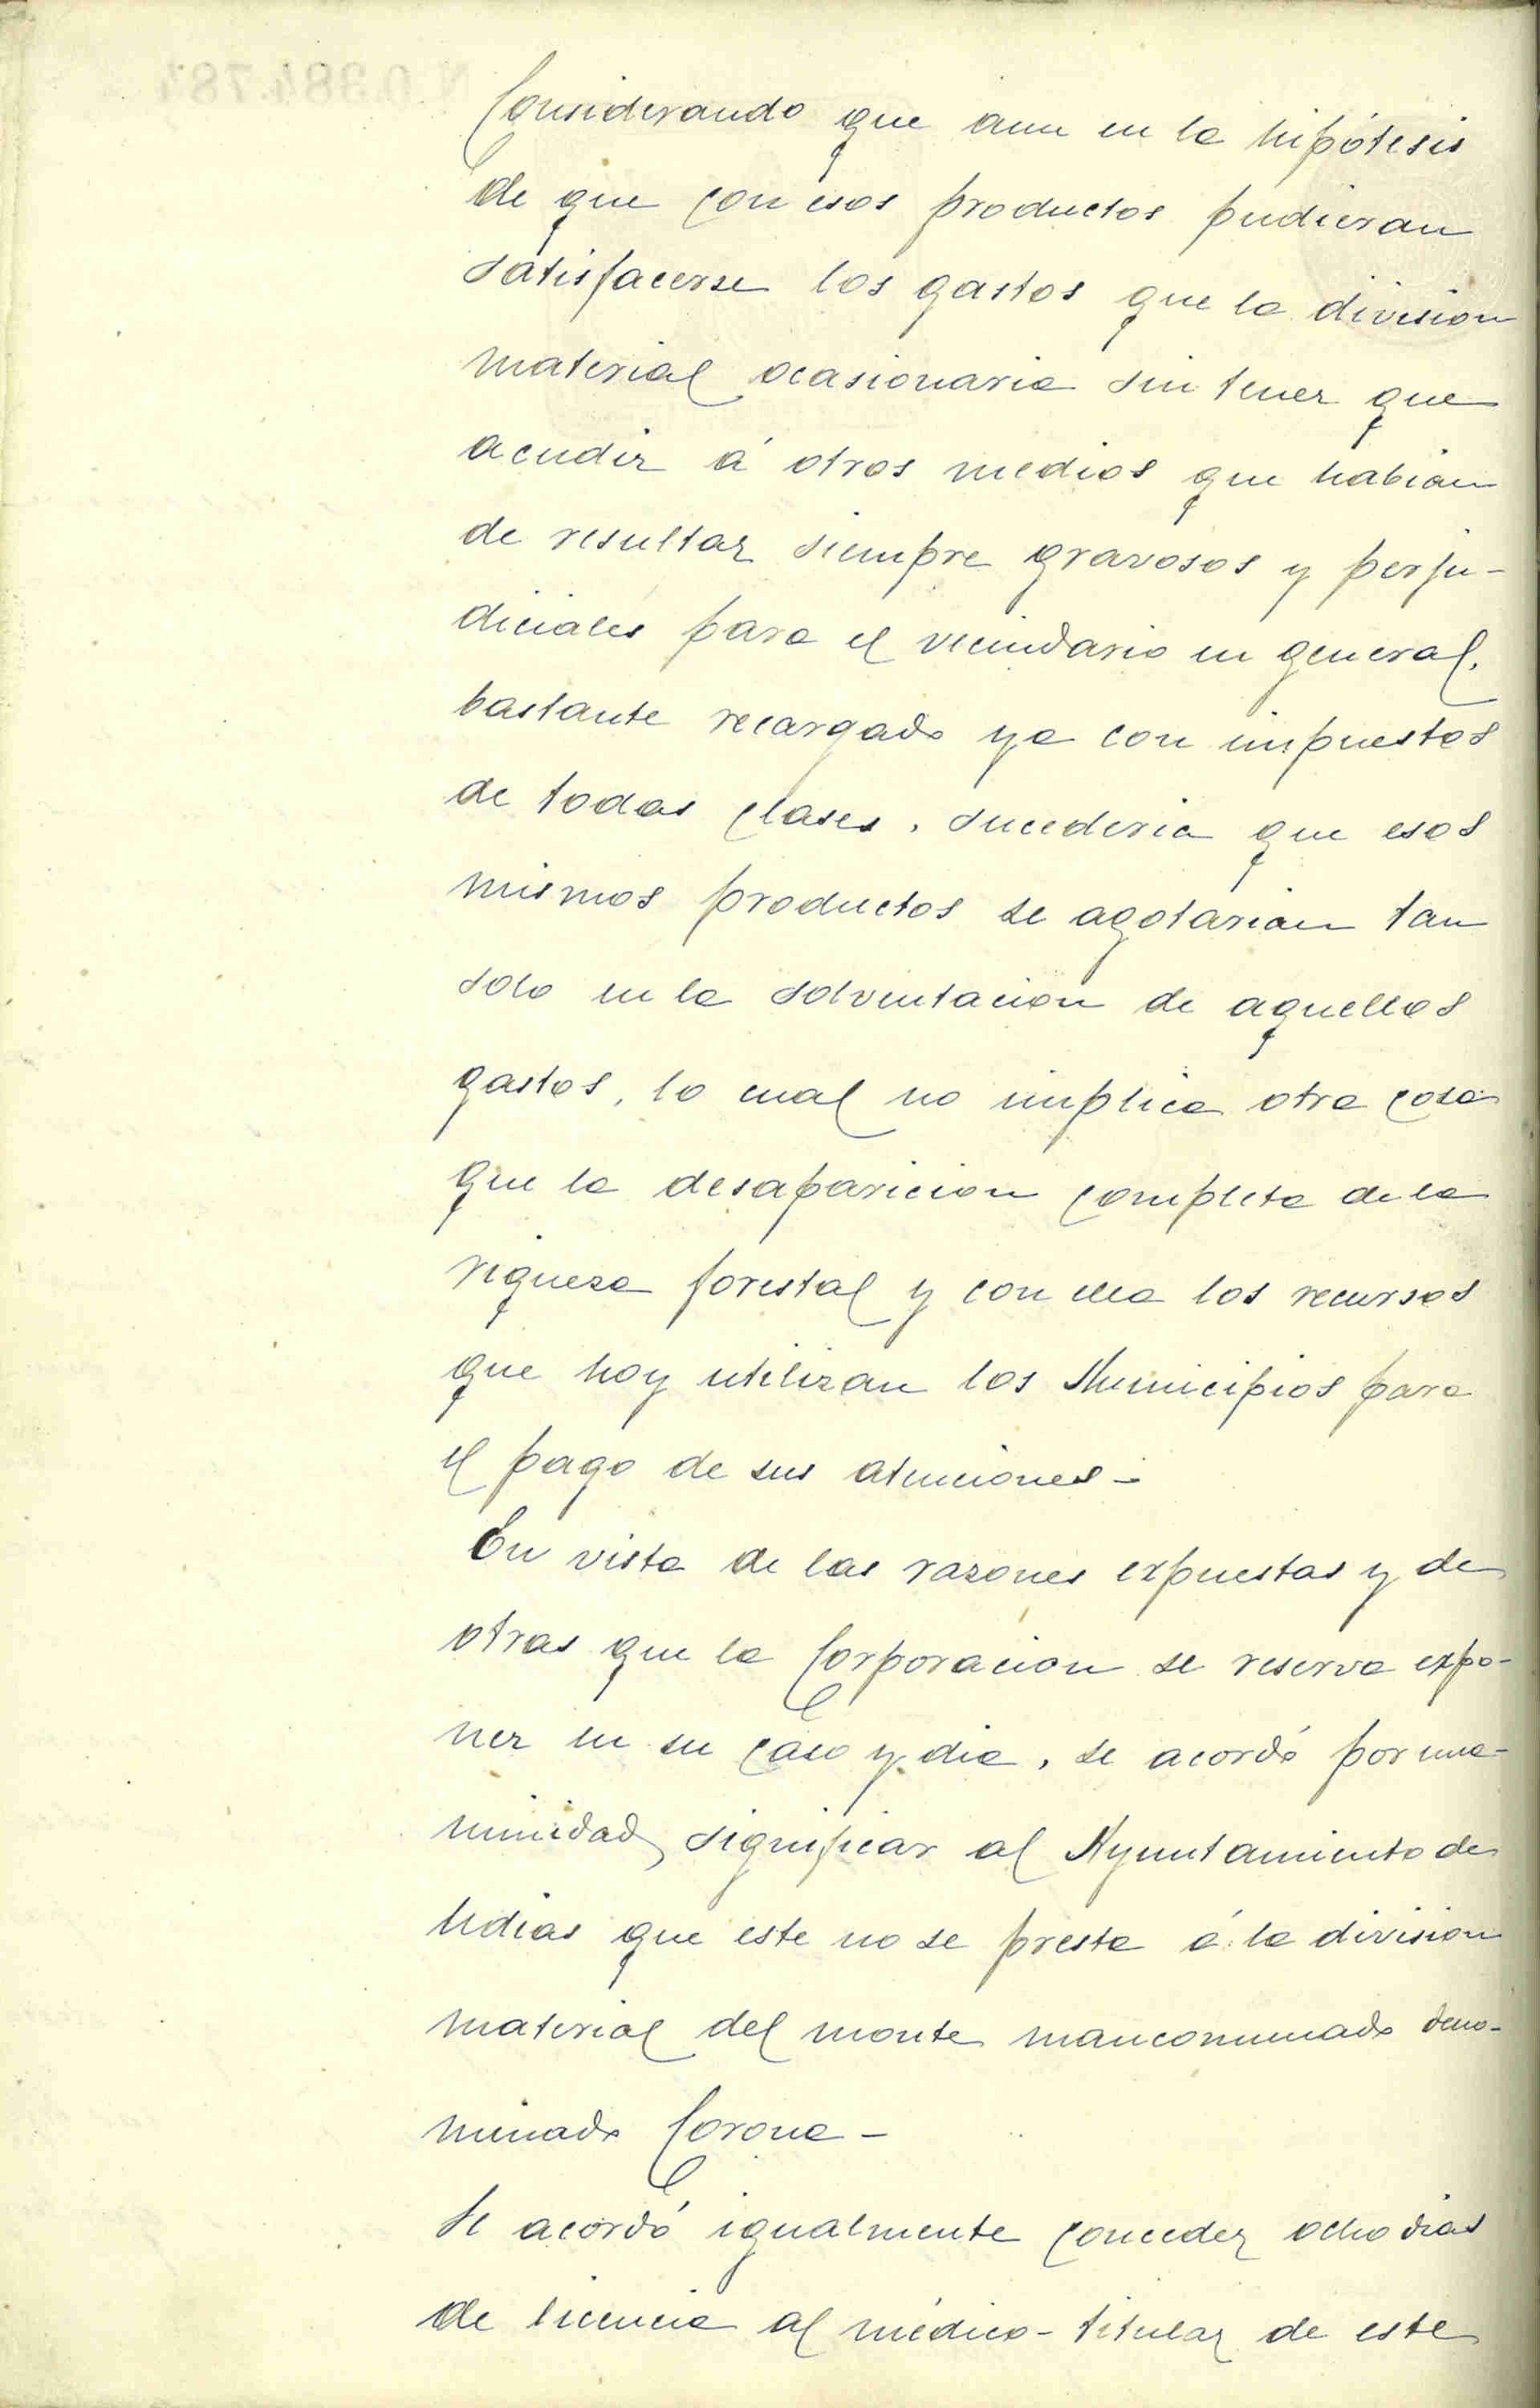 N 0.984.787
Considerando que aun en la hipótesis
de que con esos productos pudieran
satisfacerse los gastos que la division
material ocasionaria sin tener que
acudir á otros medios que habian
de resultar siempre gravosos y perju-
diciales para el vecindario en general,
bastante recargado ya con impuestos
de todas clases, sucederia que esos
mismos productos se agotarian tan
solo en la solventacion de aquellos
gastos, lo cual no implica otra cosa
que la desaparicion completa de la
riqueza forestal y con ella los recursos
que hoy utilizan los Municipios para
el pago de sus atenciones -
En vista de las razones expuestas y de
otras que la Corporacion se reserva expo-
ner en su caso y dia, se acordó por una-
nimidad significar al Ayuntamiento de
Udias que este no se presta á la division
material del monte mancomunado deno-
minado Corona -
Se acordó igualmente conceder ocho dias
de licencia al médico-titular de este